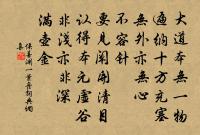 大道本無一物
遍納十方充塞
無外亦無心
不容針
要見清
認得本元虛谷
非淺亦非深
滿壺金
侯善淵一葉舟詞典網
集